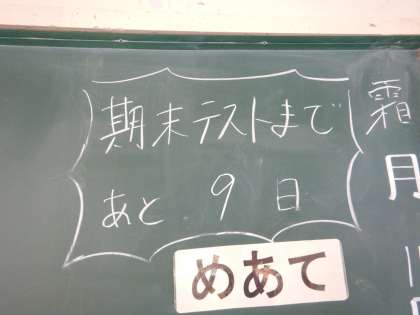 期末テストまで
あと 9日
めあて
霜
月